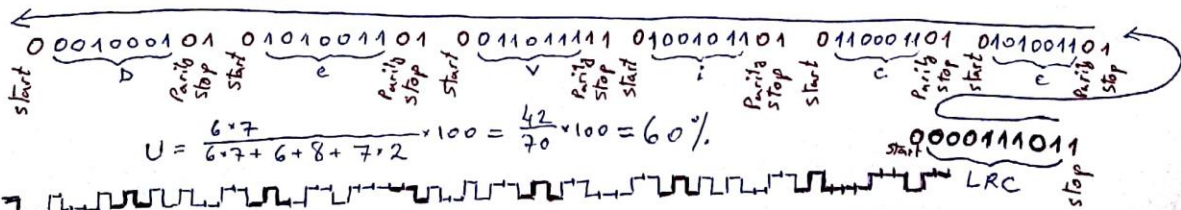 0 0010001 01 0 1010011 01 0 0110111 11 0 1001011 01 0 1100011 01 0 1010011 01
start D Parity stop start e Parity stop start V Parity stop start i Parity stop start C Parity stop start e Parity stop
U = 6*7 / 6*7+6+8+7*2 *100 = 42/70 *100 = 60%.
0000111011
start LRC stop